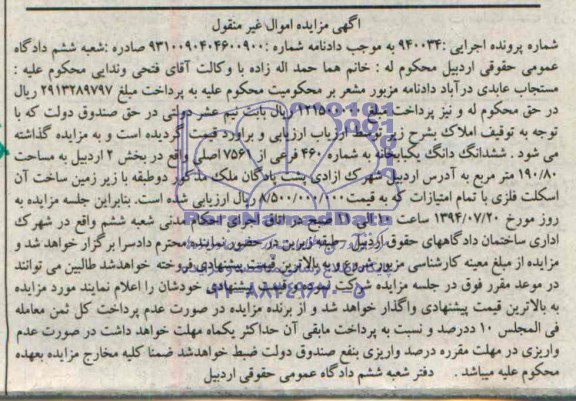 آگهی مزایده اموال غیر منقول
شماره پرونده اجرایی :۹۴۰۰۳۴ به موجب دادنامه شماره :۹۳۱۰۰۹۰۴۰۴۶۰۰۹۰۰ صادره :شعبه ششم دادگاه
عمومی حقوقی اردبیل محکوم له : خانم هما حمد اله زاده با وکالت آقای فتحی وندایی محکوم علیه :
مستجاب عابدی درآباد دادنامه مزبور مشعر بر محکومیت محکوم علیه به پرداخت مبلغ ۲۹۱۳۲۸۹۷۹۷ ریال
در حق محکوم له و نیز پرداخت مبلغ ریال بابت نیم عشر دولتی در حق صندوق دولت که با
توجه به توقیف املاک بشرح زیر توسط ارزیاب ارزیابی و براورد قیمت گردیده است و به مزایده گذاشته
می شود . ششدانگ دانگ یکبابخانه به شماره ۴۶۰ فرعی از ۷۵۶۱ اصلی واقع در بخش ۲ اردبیل به مساحت
۱۹۰/۸۰ متر مربع به آدرس اردبیل شهرک ازادی پشت پادگان ملک مذکور دوطبقه با زیر زمین ساخت آن
اسکلت فلزی با تمام امتیازات که به قیمت ۸/۵۰۰/۰۰۰/۰۰۰ ریال ارزیابی شده است. بنابراین جلسه مزایده به
روز مورخ ۱۳۹۴/۰۷/۲۰ ساعت ۱۰ الی ۱۱ صبح در اتاق اجرای احکام مدنی شعبه ششم واقع در شهرک
اداری ساختمان دادگاههای حقوق اردبیل طبقه زیرین در حضور نماینده محترم دادسرا برگزار خواهد شد و
مزایده از مبلغ معینه کارشناسی مزبور شروع و به بالاترین قیمت پیشنهادی فروخته خواهدشد طالبین می توانند
در موعد مقرر فوق در جلسه مزایده شرکت نموده و قیمت پیشنهادی خودشان را اعلام نمایند مورد مزایده
به بالاترین قیمت پیشنهادی واگذار خواهد شد و از برنده مزایده در صورت عدم پرداخت کل ثمن معامله
فی المجلس ۱۰ درصد و نسبت به پرداخت مابقی آن حداکثر یکماه مهلت خواهد داشت در صورت عدم
واریزی در مهلت مقرره درصد واریزی بنفع صندوق دولت ضبط خواهدشد ضمنا کلیه مخارج مزایده بعهده
محکوم علیه میباشد . دفتر شعبه ششم دادگاه عمومی حقوقی اردبیل